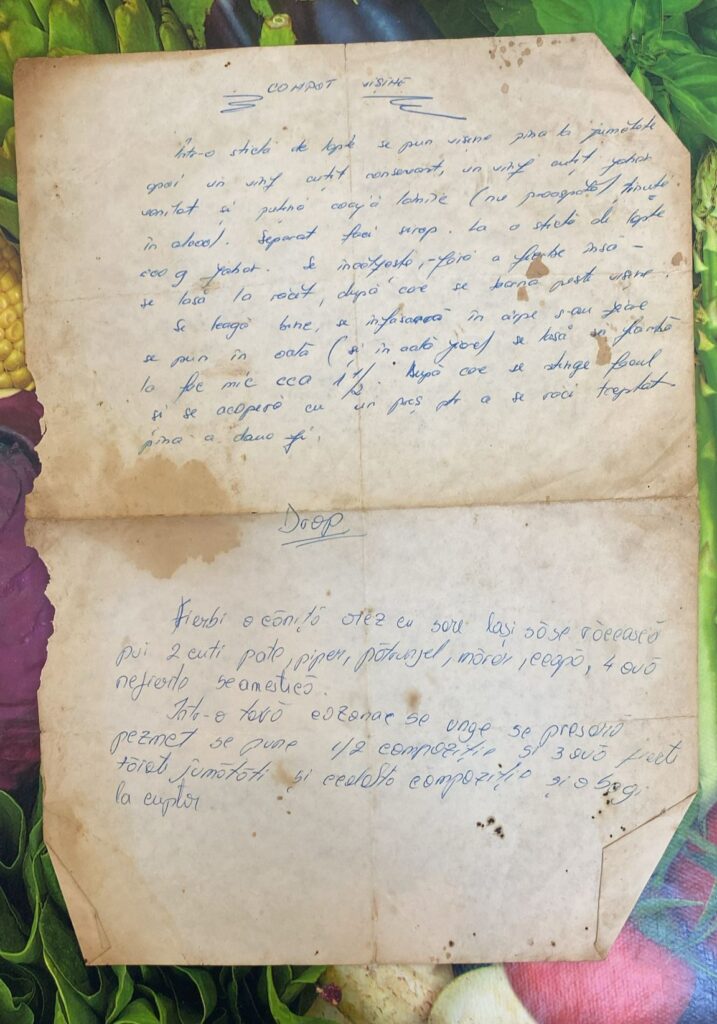 COMPOT VIȘINE
Într-o sticlă de lapte se pun vișine pîna la jumătate
apoi un vîrf cuțit conservant, un vîrf cuțit zahar
vanilat și puțină coajă lamîie (nu proaspătă) ținută
în alcool. Separat faci sirop. La o sticlă de lapte
g zahar. Se încălzește, - fără a fierbe însă -
se lasă la răcit, după care se toarna peste vișine.
Se leagă bine, se înfășoară în cîrpe s-au ziare
se pun în oală (și în oală ziare) se lasă să fiarbă
la foc mic cca 1 1/2. După care se stinge focul
și se acoperă cu un preș ptr a se răci treptat
pîna a doua zi.
Drop
Fierbi o căniță orez cu sare lași să se răcească
pui 2 cuti pate, piper, pătrunjel, mărar, ceapă, 4 ouă
nefierte se amestică.
Într-o tavă cozonac se unge se presară
pezmet se pune 1/2 compoziție și 3 ouă fierti
tăiati jumătăti și cealalta compoziție și o bagi
la cuptor